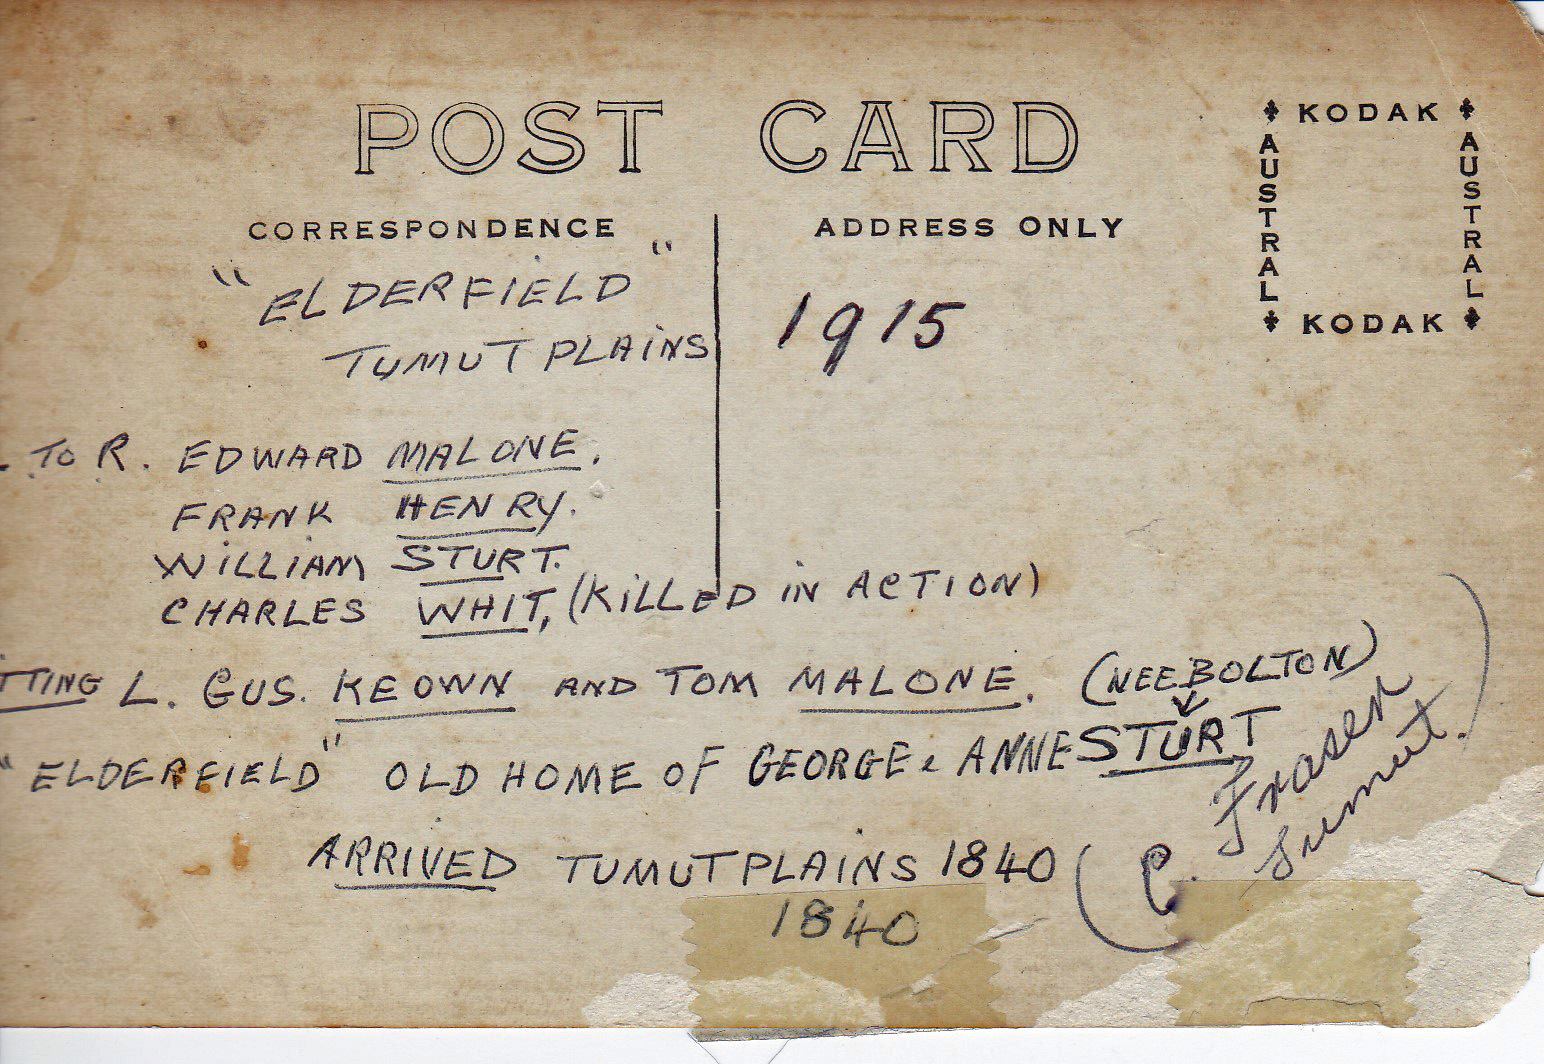 POST CARD
CORRESPONDENCE
ADDRESS ONLY
KODAK
AUSTRAL
AUSTRAL
KODAK
"ELDERFIELD"
TUMUT PLAINS
1915
. TO R. EDWARD MALONE.
FRANK HENRY.
WILLIAM STURT.
CHARLES WHIT, (KILLED IN ACTION)
TTING L. GUS. KEOWN AND TOM MALONE. (NEE BOLTON)
"ELDERFIELD" OLD HOME OF GEORGE & ANNE STURT
ARRIVED TUMUT PLAINS 1840
1840
(C. Fraser
Tumut.)